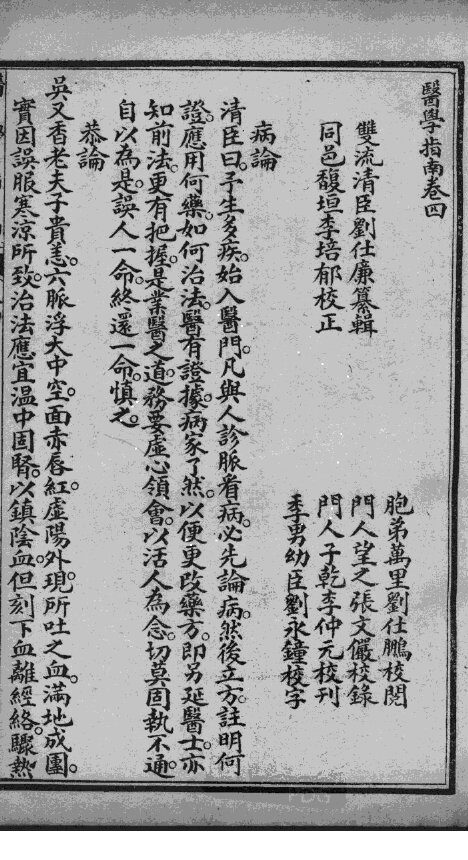 醫學指南卷四
胞弟萬里劉仕鵬校閱
雙流清臣劉仕廉纂輯
門人望之張文儼校錄
同邑馥垣李培郁校正
門人子乾李仲元校刊
季男幼臣劉永鐘校字
病論
清臣曰。予生多疾。始入醫門。凡與人診脈看病。必先論病。然後立方。註明何
證。應用何藥。如何治法。醫有證據。病家了然。以便更改藥方。即另延醫士。亦
知前法。更有把握。是業醫之道。務要虛心領會。以活人為念。切莫固執不通。
自以為是。誤人一命。終還一命。慎之。
恭論
吳又香老夫子貴恙。六脈浮大中空。面赤唇紅。虛陽外現。所吐之血。滿地成團。
實因誤服寒涼所致。治法應宜温中固腎。以鎮陰血。但刻下血離經絡。驟熱